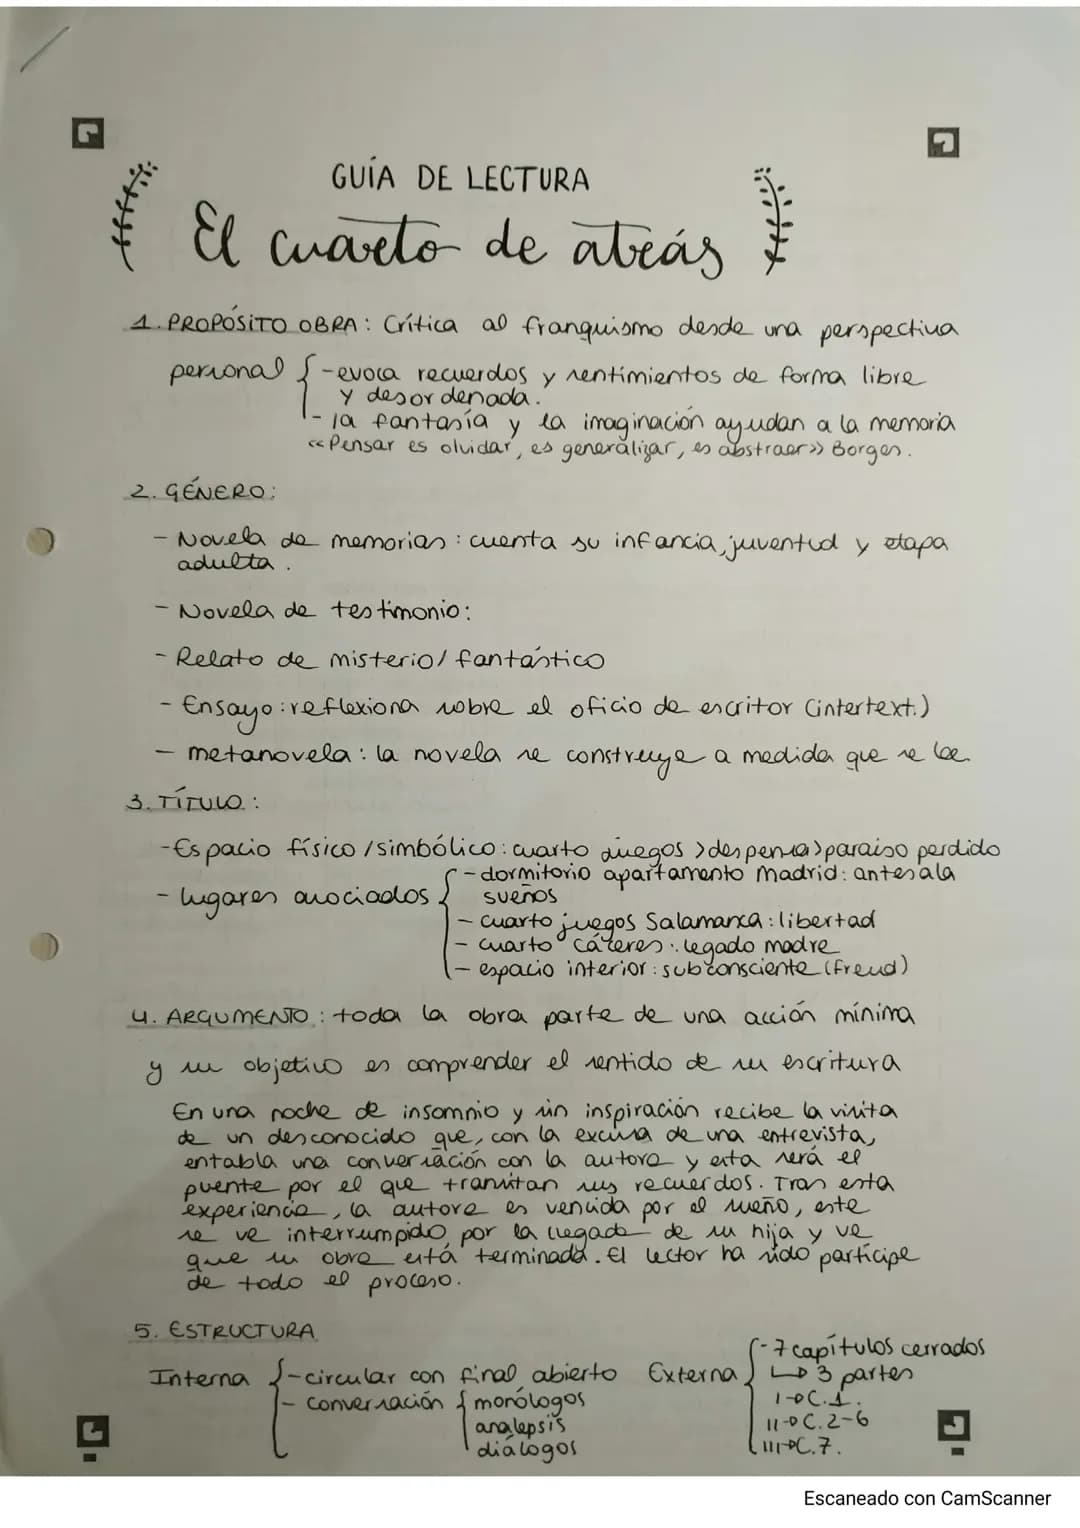 GUÍA DE LECTURA
El cuarto de atrás
1. PROPÓSITO OBRA: Crítica al franquismo desde una perspectiva
personal - evoca recuerdos y sentimientos de forma libre
y desordenada.
- la fantasía y la imaginación ayudan a la memoria
<<Pensar es olvidar, es generalizar, es abstraer>> Borges.
2. GÉNERO:
- Novela de memorias: cuenta su infancia, juventud y etapa
adulta.
- Novela de testimonio:
- Relato de misterio/fantástico
- Ensayo: reflexiona sobre el oficio de escritor (intertext.)
- metanovela: la novela se construye a medida que se lee
3. TÍTULO:
- Espacio físico/simbólico: cuarto juegos > despensa > paraiso perdido
- lugares asociados - dormitorio apartamento Madrid: antesala
sueños
- cuarto juegos Salamanca: libertad
- cuarto Cáceres: legado madre
- espacio interior: subconsciente (Freud)
4. ARGUMENTO: toda la obra parte de una acción mínima
y su objetivo es comprender el sentido de su escritura
En una noche de insomnio y sin inspiración recibe la visita
de un desconocido que, con la excusa de una entrevista,
entabla una conversación con la autora y esta será el
puente por el que transitan sus recuerdos. Tras esta
experiencia, la autora es vencida por el sueño, este
se ve interrumpido por la llegada de su hija y ve
que su obra está terminada. El lector ha sido partícipe
de todo el proceso.
5. ESTRUCTURA
Interna - circular con final abierto Externa - 7 capítulos cerrados
- conversación monólogos ↳ 3 partes
analepsis I→C.1.
diálogos II→C.2-6
III→C.7.
Escaneado con CamScanner